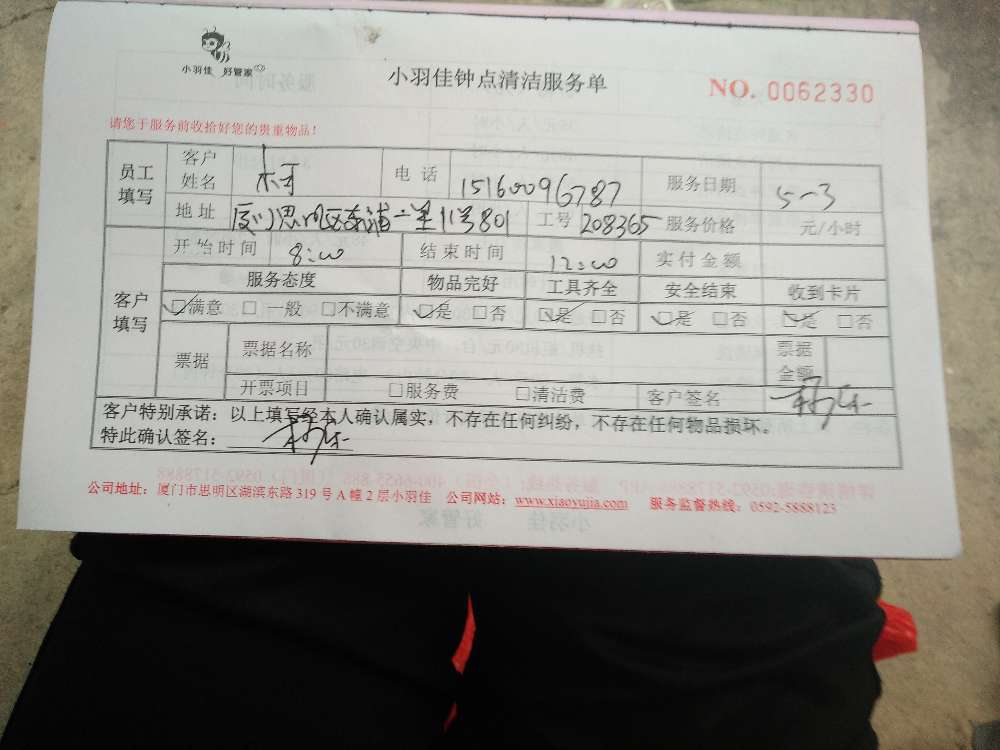 小羽佳 好管家
小羽佳钟点清洁服务单
NO. 0062330
请您于服务前收拾好您的贵重物品！
员工填写 客户姓名 电话 15160096787 服务日期 5-3
地址 厦门思明区东浦一里11号801 工号 208365 服务价格 元/小时
开始时间 8:00 结束时间 12:00 实付金额
客户填写 服务态度 物品完好 工具齐全 安全结束 收到卡片
☑满意 □一般 □不满意 ☑是 □否 ☑是 □否 ☑是 □否 ☑是 □否
票据 票据名称 票据金额
开票项目 □服务费 □清洁费 客户签名
客户特别承诺：以上填写经本人确认属实，不存在任何纠纷，不存在任何物品损坏。
特此确认签名：
公司地址：厦门市思明区湖滨东路 319 号 A 幢 2 层小羽佳 公司网站：www.xiaoyujia.com 服务监督热线：0592-5888123